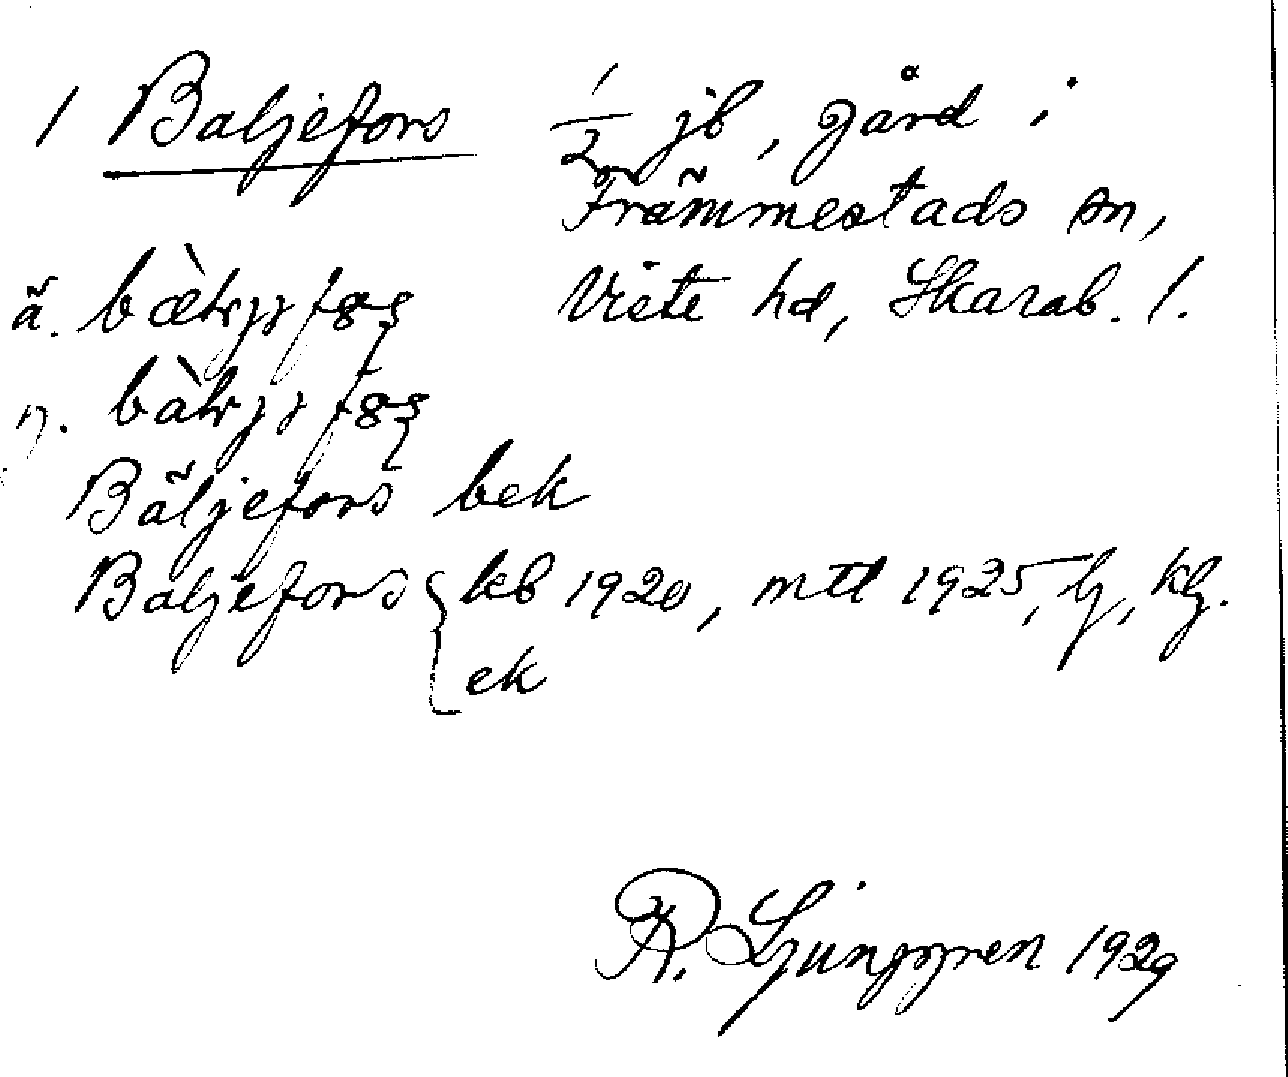 1 Baljefors 1/2 jb, gård i
Främmestads sn,
Viste hd, Skarab. l.
ä.
y.
Bäljefors bek
Baljefors { kb 1920, mtl 1925, lj, klj.
ek
R. Ljunggren 1929